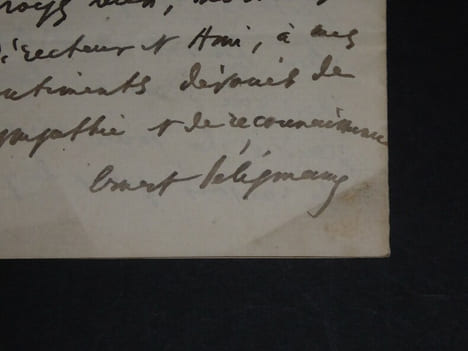 Directeur et Ami, à mes
sentiments dévoués de
sympathie et de reconnaissance
Ernest Seligmann